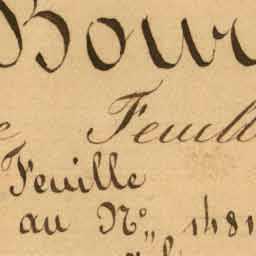 Bour
e Feuill
Feuille
au Nº 1481